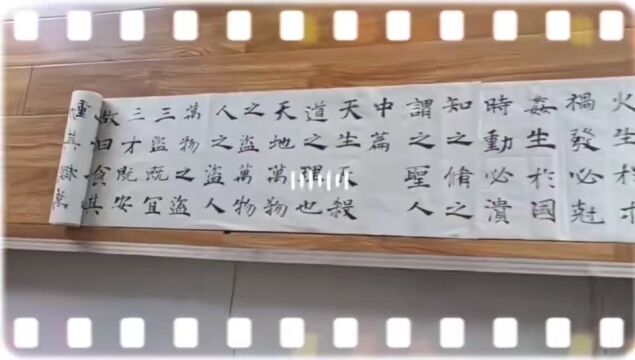 火生於木
禍發必尅
姦生於國
時動必潰
知之脩之
謂之聖人
中篇
天生天殺
道之理也
天地萬物
之盜萬物
人之盜人
萬物之盜
三盜既宜
三才既安
故曰食其